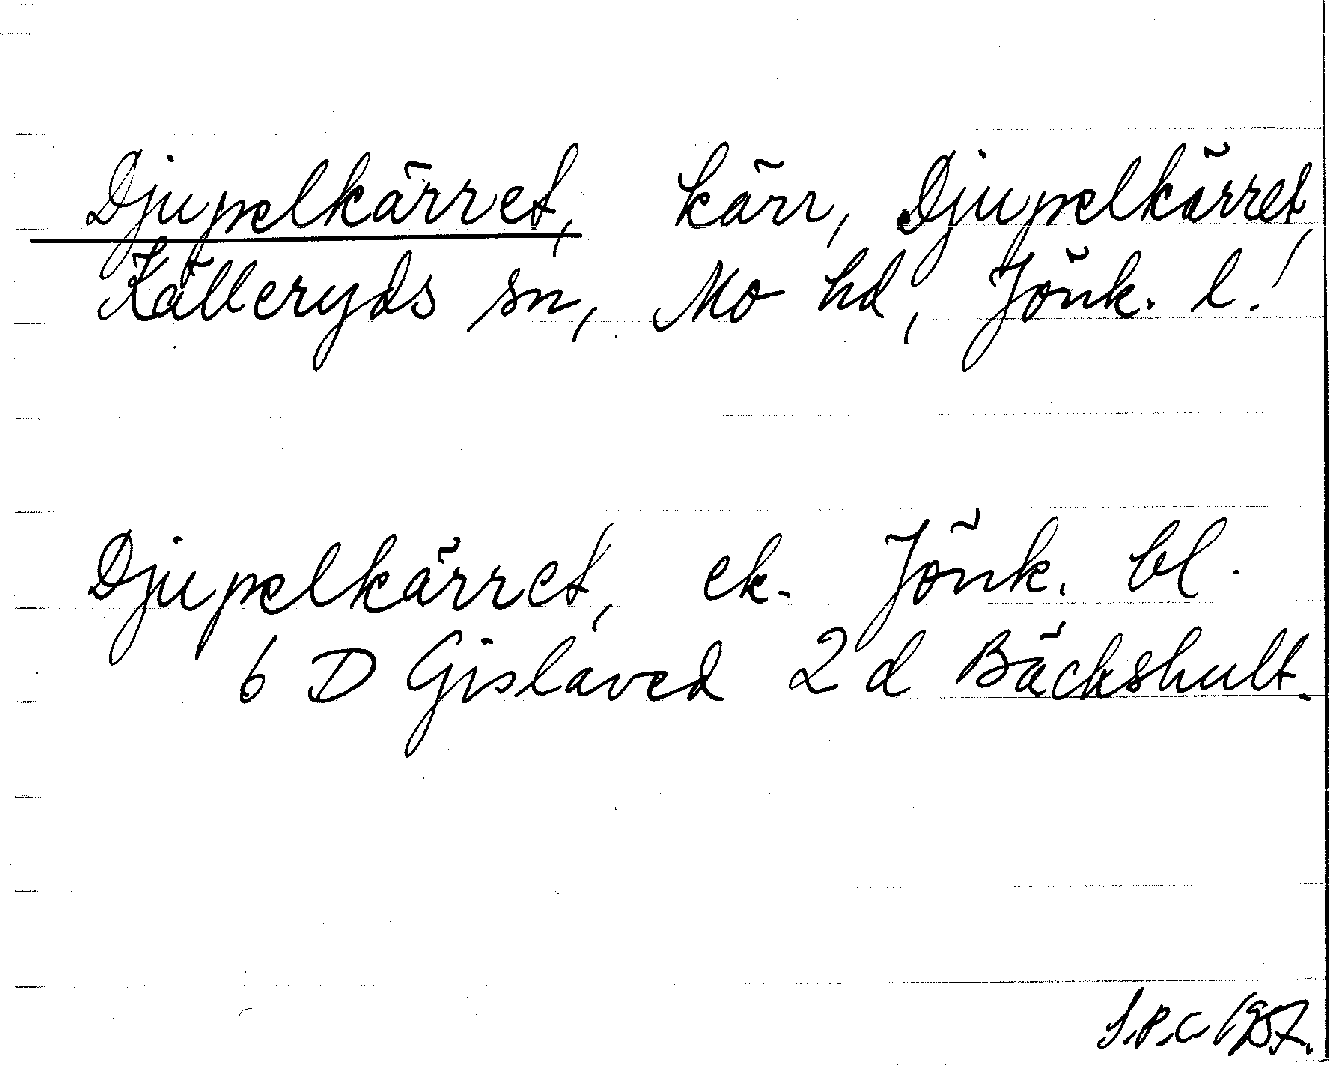 Djupelkärret, kärr, Djupelkärret,
Källeryds sn, Mo hd, Jönk. l.
Djupelkärret, ek. Jönk. bl.
6 D Gislaved 2 d Bäckshult.
S.P.C. 1957.